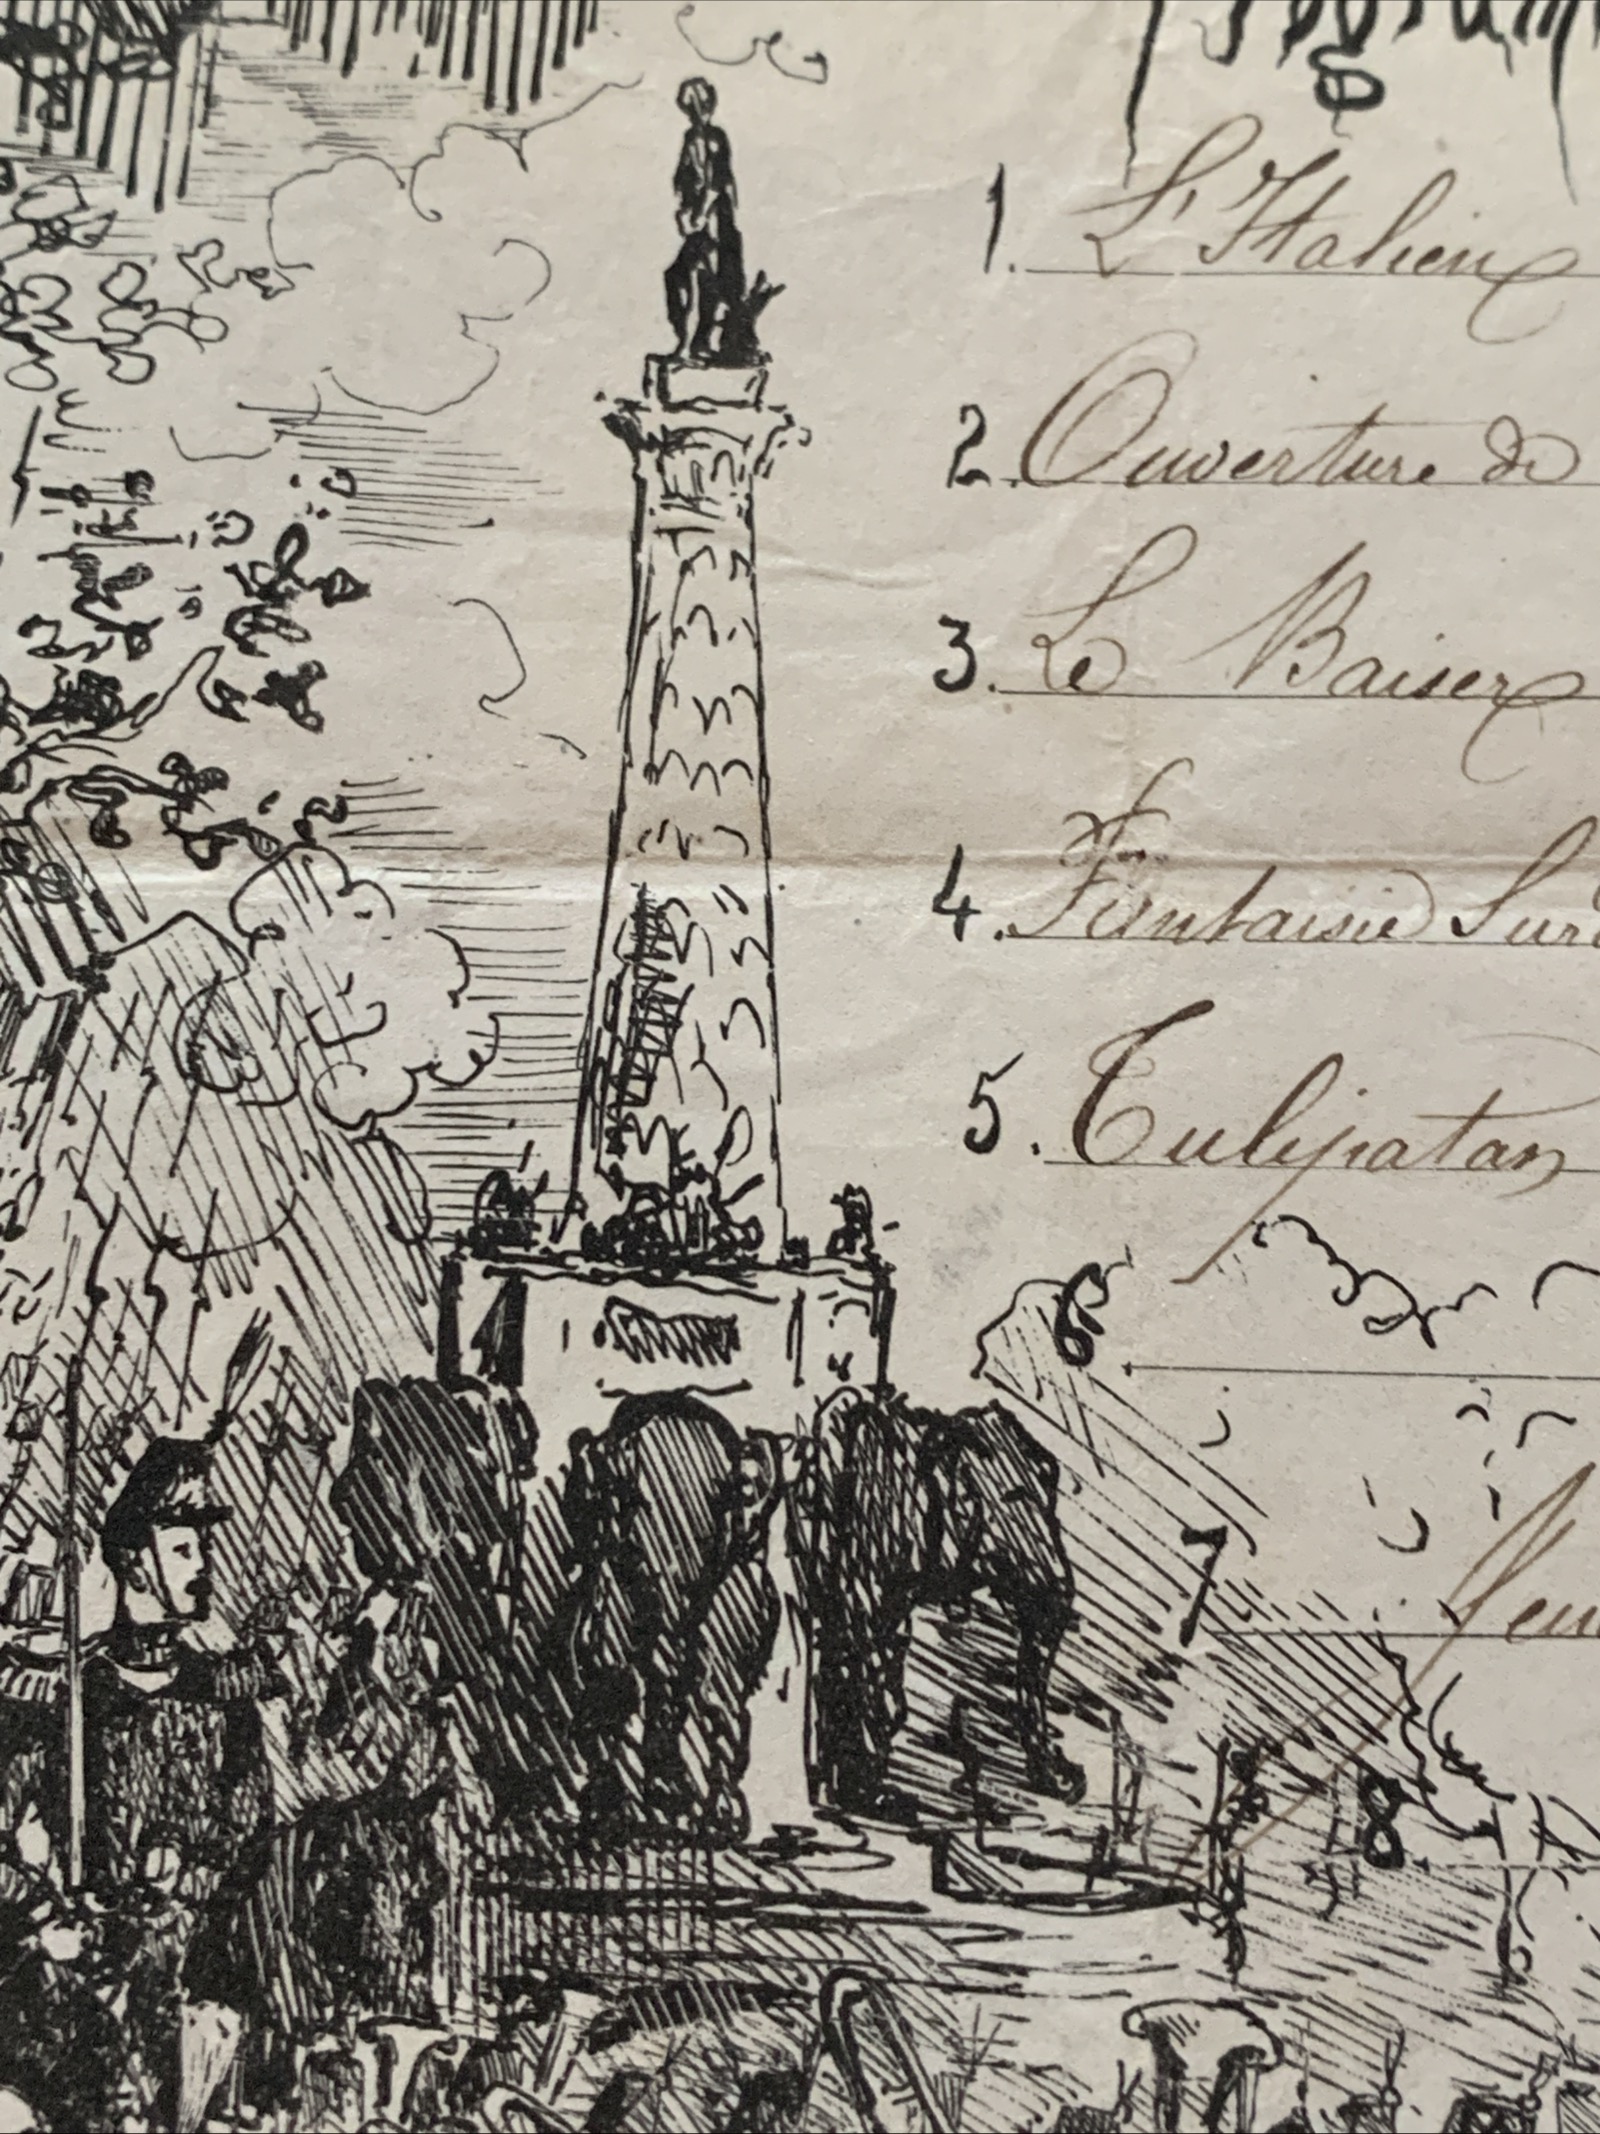 Programme
1. L'Italien
2. Ouverture de
3. Le Baiser
4. Fantaisie Sur
5. Tulipatan
6.
7.
8.